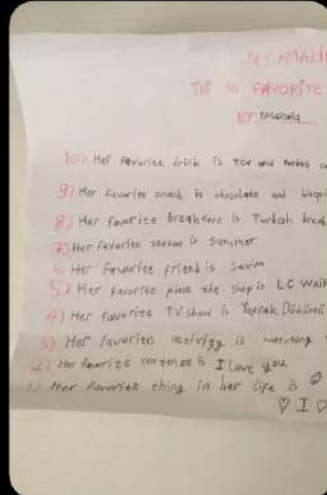 MY
TOP 10 FAVORITE
BY:
10) Her favorite drink is tea and
9) Her favorite snack is chocolate and
8) Her favorite breakfast is Turkish
7) Her favorite season is Summer
6) Her favorite friend is Savim
5) Her favorite place the shop is LC
4) Her favorite TV show is Yaprak Dökümü
3) Her favorite activity is watching
2) Her favorite sentence is I love you
1) Her favorite thing in her life is
♡ I ♡